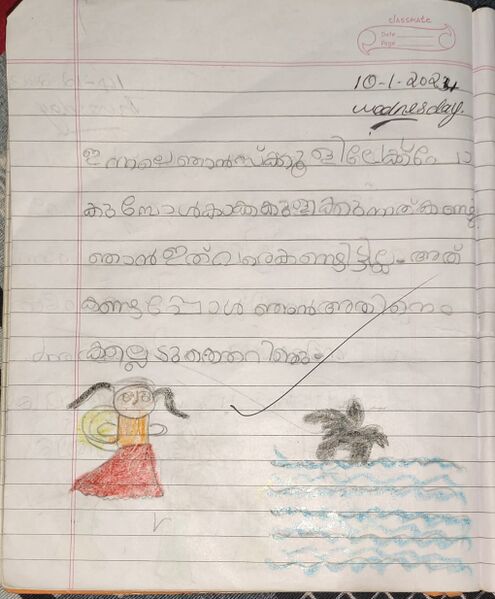 classmate
Date
Page
10-1-2024
wednesday.
ഇന്നലെ ഞാൻ സ്ക്കൂളിലേക്ക്
കുമ്പോൾ കാക്ക കുളിക്കുന്നത് കണ്ടു
ഞാൻ ഇത് വരെ കണ്ടിട്ടില്ല. അത്
കണ്ടപ്പോൾ ഞാൻ അതിനെ
കല്ലെടുത്തെറിഞ്ഞു